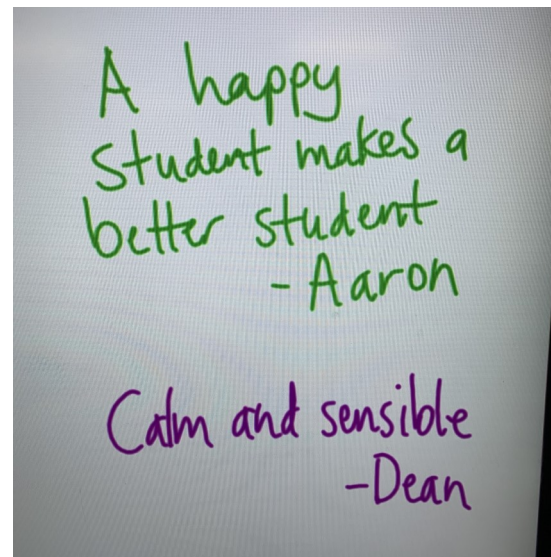 A happy
Student makes a
better student
- Aaron
Calm and sensible
-Dean